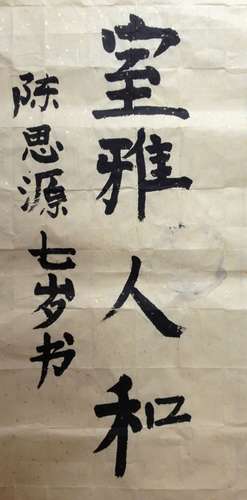 室雅人和
陈思源七岁书